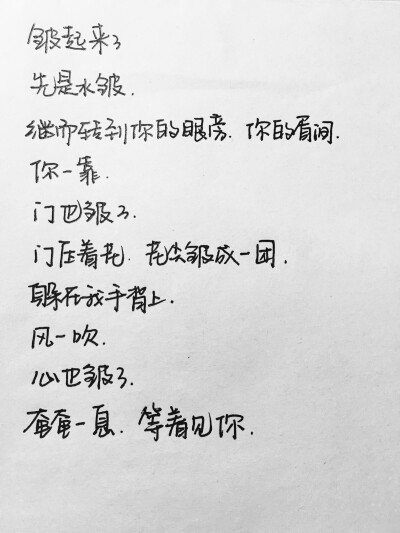 皱起来了
先是水皱.
继而转到你的眼旁.你的眉间.
你一靠.
门也皱了.
门压着花.花尖皱成一团.
躲在我手背上.
风一吹.
心也皱了.
奄奄一息.等着见你.